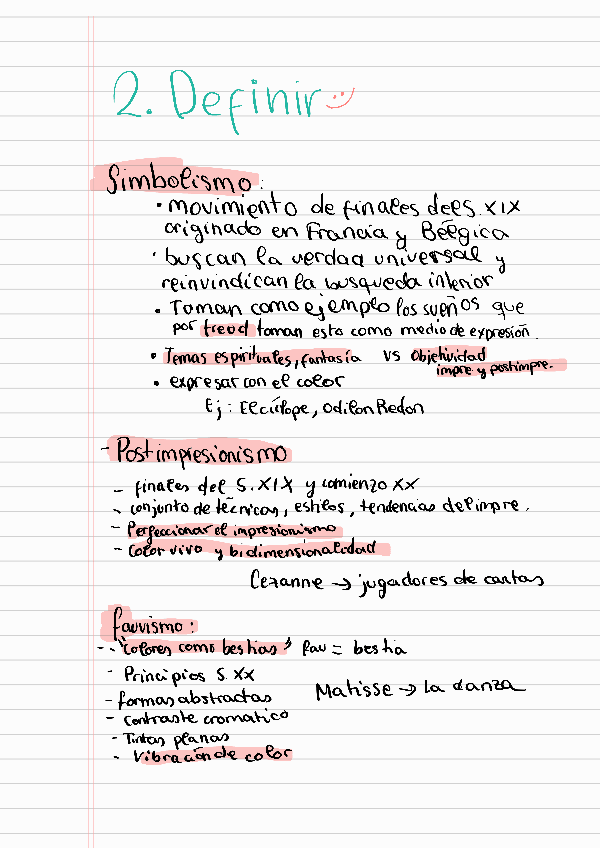 2. Definir
Simbolismo:
• movimiento de finales del S. XIX
originado en Francia y Bélgica
• buscan la verdad universal y
reinvindican la busqueda interior
• Toman como ejemplo los sueños que
por freud toman esto como medio de expresión.
• Temas espirituales, fantasía vs Objetividad
impre y postimpre.
• expresar con el color
Ej: El cíclope, Odilon Redon
- Postimpresionismo
- finales del S. XIX y comienzo XX
- conjunto de técnicas, estilos, tendencias del impre.
- Perfeccionar el impresionismo
- Color vivo y bidimensionalidad
Cezanne → jugadores de cartas
fauvismo:
- "Colores como bestias" fau = bestia
- Principios S. XX
- formas abstractas
Matisse → la danza
- Contraste cromatico
- Tintas planas
- Vibración de color